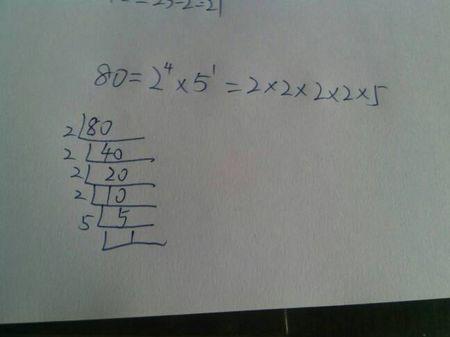 = 23-2=21
80=2⁴×5¹=2×2×2×2×5
2 80
2 40
2 20
2 10
5 5
1